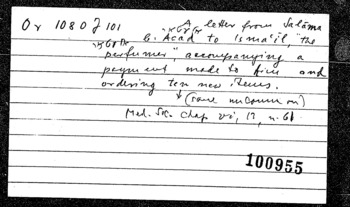 Or 1080 J 101
A letter from Salāma
b. Asad to Ismāʿīl, "the
perfumer," accompanying a
payment made to him and
ordering ten new items.
(some uncommon)
Med. Soc. Chap vi, 12, n. 61
100955